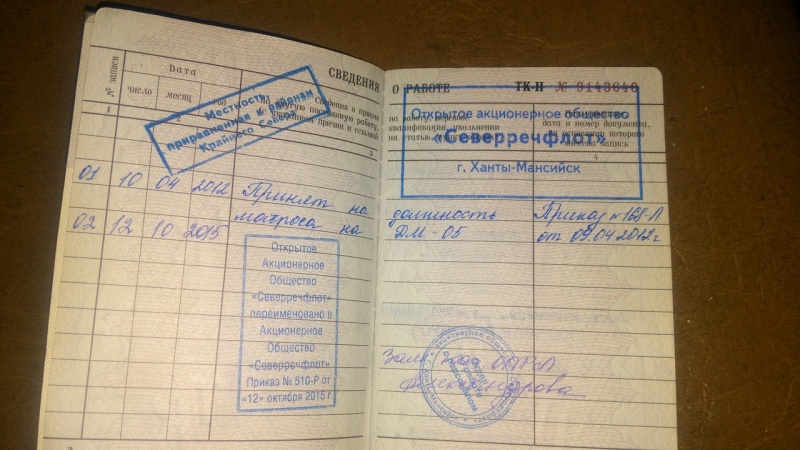 СВЕДЕНИЯ О РАБОТЕ ТК-II № 9143640
№ записи
Дата
число месяц год
Сведения о приеме
на другую постоянную работу,
причин и ссылкой
на работу,
квалификации, увольнении
на статью,
дата и номер документа,
на основании которого
внесена запись
Местности,
приравненная к районам
Крайнего Севера
Открытое акционерное общество
«Северречфлот»
г. Ханты-Мансийск
1 2 3 4
01 10 04 2012 Принят на должность Приказ № 168-Л
матроса на ДМ-05 от 09.04.2012 г
02 12 10 2015
Открытое
Акционерное
Общество
«Северречфлот»
переименовано в
Акционерное
Общество
«Северречфлот»
Приказ № 510-Р от
«12» октября 2015 г